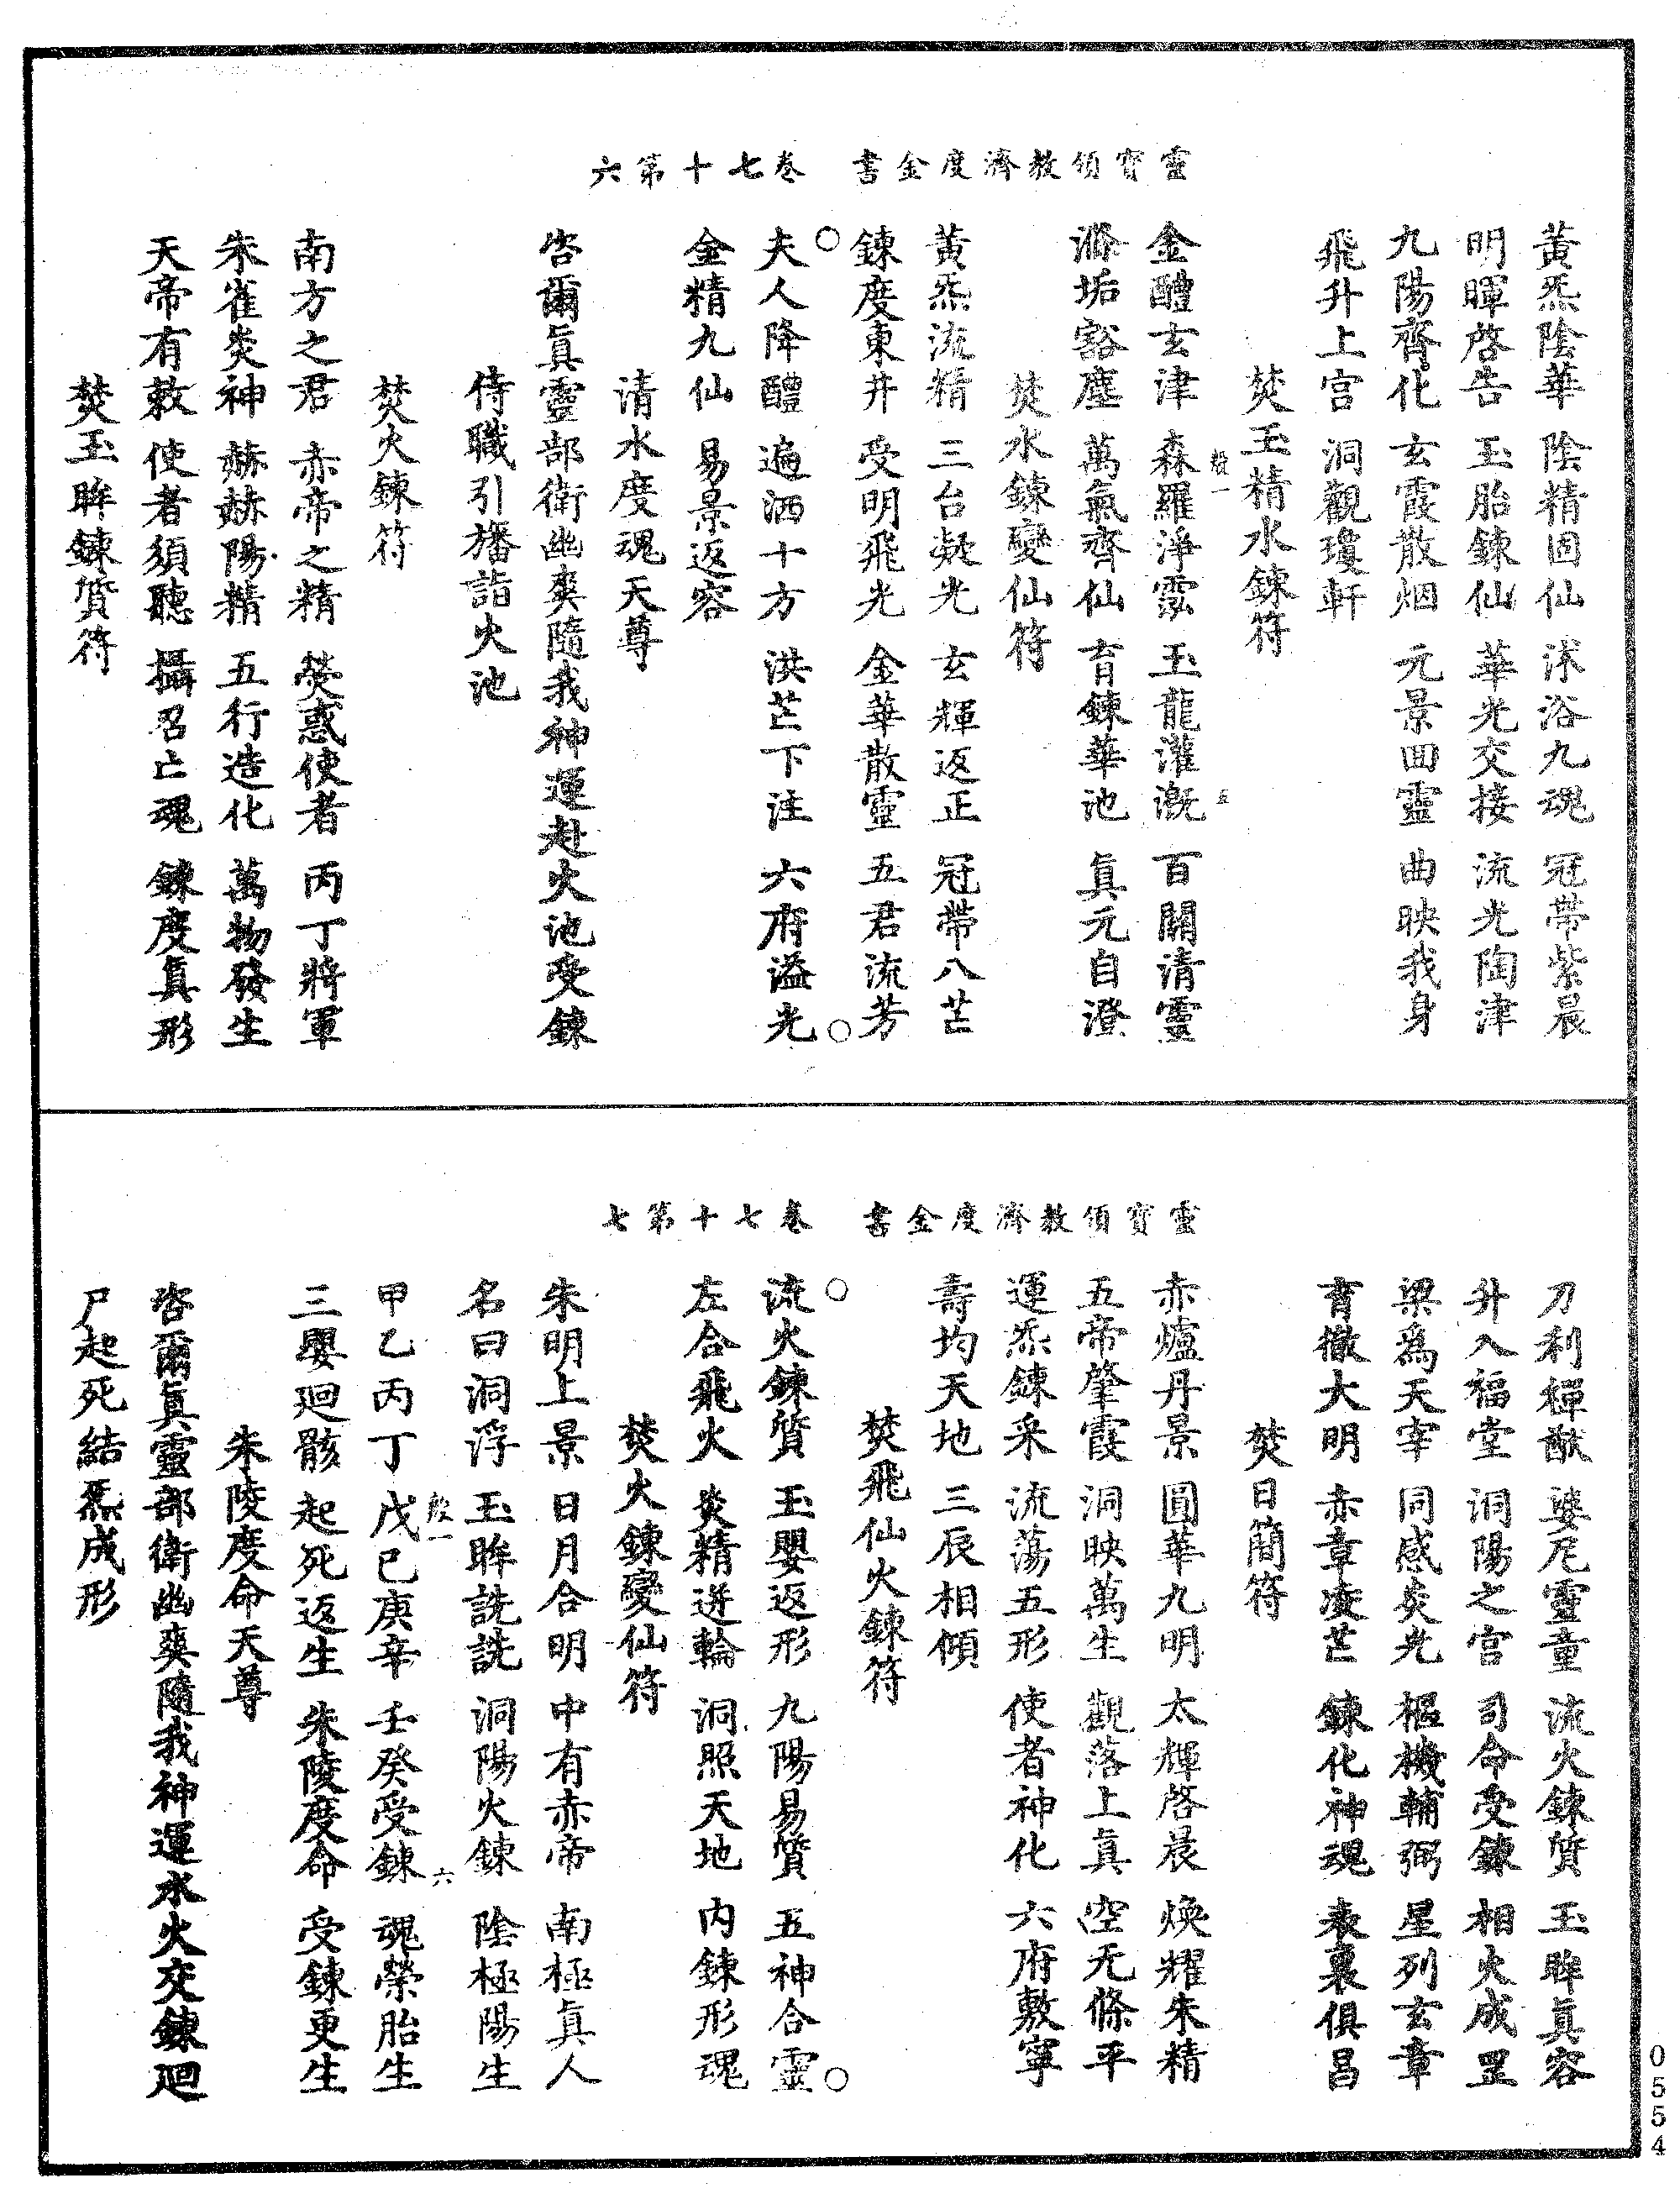 靈寶領教濟度金書 卷七十第六
黃炁陰華 陰精固仙 沐浴九魂 冠帶紫晨
明暉啓告 玉胎鍊仙 華光交接 流光陶津
九陽齊化 玄霞散烟 元景回靈 曲映我身
飛升上宮 洞觀瓊軒
焚玉精水鍊符
金醴玄津 森羅淨雲 玉龍灌溉 百關清靈
滌垢豁塵 萬氣齊仙 育鍊華池 眞元自澄
焚水鍊變仙符
黃炁流精 三台凝光 玄輝返正 冠帶八芒
鍊度東井 受明飛光 金華散靈 五君流芳
夫人降醴 遍洒十方 洪芒下注 六府溢光
金精九仙 易景返容
清水度魂天尊
咨爾眞靈部衛幽爽隨我神運赴火池受鍊
侍職引旛詣火池
焚火鍊符
南方之君 赤帝之精 熒惑使者 丙丁將軍
朱雀炎神 赫赫陽精 五行造化 萬物發生
天帝有敕 使者須聽 攝召亡魂 鍊度眞形
焚玉眸鍊質符
靈寶領教濟度金書 卷七十第七
刀利禪猷 婆尼靈童 流火鍊質 玉眸眞容
升入福堂 洞陽之宮 司命受鍊 相火成罡
梁爲天宰 同感炎光 樞機輔弼 星列玄章
育徹大明 赤章凌芒 鍊化神魂 表裏俱昌
焚日簡符
赤爐丹景 圓華九明 太輝啓晨 煥耀朱精
五帝肇霞 洞映萬生 觀落上眞 空无絛平
運炁鍊采 流蕩五形 使者神化 六府敷寧
壽均天地 三辰相傾
焚飛仙火鍊符
流火鍊質 玉嬰返形 九陽易質 五神合靈
左合飛火 炎精迸輪 洞照天地 內鍊形魂
焚火鍊變仙符
朱明上景 日月合明 中有赤帝 南極眞人
名曰洞浮 玉眸詵詵 洞陽火鍊 陰極陽生
甲乙丙丁 戊己庚辛 壬癸受鍊 魂榮胎生
三嬰迴骸 起死返生 朱陵度命 受鍊更生
朱陵度命天尊
咨爾眞靈部衛幽爽隨我神運水火交鍊迴
尸起死結炁成形
0554